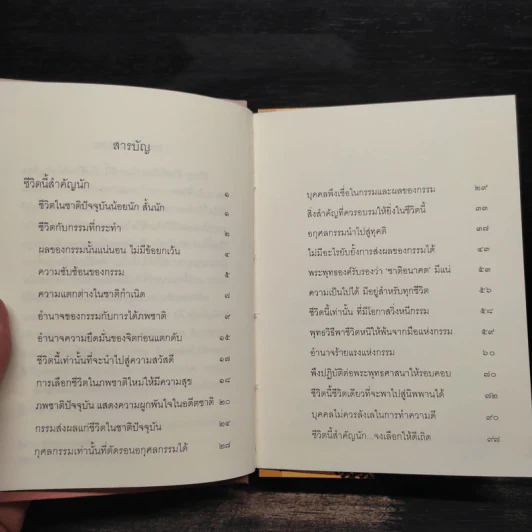 สารบัญ
ชีวิตนี้สำคัญนัก ๑
ชีวิตในชาติปัจจุบันน้อยนัก สั้นนัก ๑
ชีวิตกับกรรมที่กระทำ ๒
ผลของกรรมนั้นแน่นอน ไม่มีข้อยกเว้น ๔
ความซับซ้อนของกรรม ๕
ความแตกต่างในชาติกำเนิด ๗
อำนาจของกรรมกับการได้ภพชาติ ๙
อำนาจความยึดมั่นของจิตก่อนแตกดับ ๑๕
ชีวิตนี้เท่านั้นที่จะนำไปสู่ความสวัสดี ๑๗
การเลือกชีวิตในภพชาติใหม่ให้มีความสุข ๑๘
ภพชาติปัจจุบัน แสดงความผูกพันในอดีตชาติ ๒๐
กรรมส่งผลแก่ชีวิตในชาติปัจจุบัน ๒๔
กุศลกรรมเท่านั้นที่ตัดรอนอกุศลกรรมได้ ๒๘
บุคคลพึงเชื่อในกรรมและผลของกรรม ๒๙
สิ่งสำคัญที่ควรอบรมให้ยิ่งในชีวิตนี้ ๓๓
อกุศลกรรมนำไปสู่ทุคติ ๓๗
ไม่มีอะไรยับยั้งการส่งผลของกรรมได้ ๔๓
พระพุทธองค์รับรองว่า 'ชาติอนาคต' มีแน่ ๕๓
ความเป็นไปได้ มีอยู่สำหรับทุกชีวิต ๕๖
ชีวิตนี้เท่านั้น ที่มีโอกาสวิ่งหนีกรรม ๕๘
พุทธวิธีพาชีวิตหนีให้พ้นจากมือแห่งกรรม ๕๙
อำนาจร้ายแรงแห่งกรรม ๖๐
พึงปฏิบัติต่อพระพุทธศาสนาให้รอบคอบ ๗๐
ชีวิตนี้ชีวิตเดียวที่จะพาไปสู่นิพพานได้ ๗๒
บุคคลไม่ควรลังเลในการทำความดี ๙๐
ชีวิตนี้สำคัญนัก...จงเลือกให้ดีเถิด ๙๗